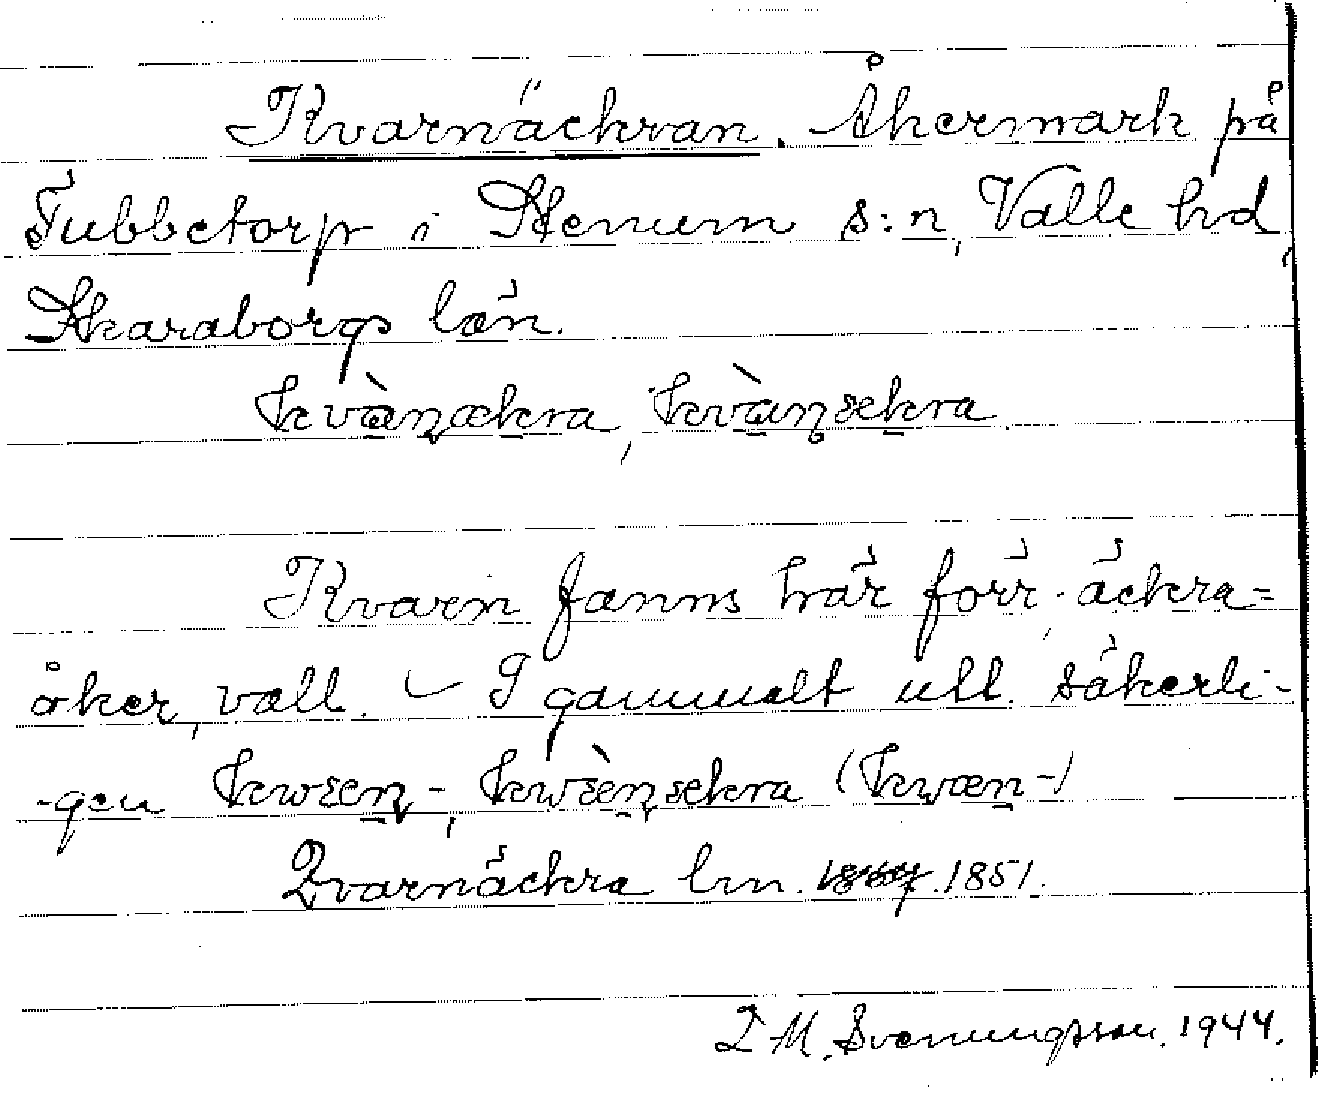 Kvarnäckran. Åkermark på
Tubbetorp i Stenum s:n, Valle hd,
Skaraborgs län.
kvànækra, kvànækra
Kvarn fanns här förr. äckra =
åker, vall. – I gammalt utt. säkerli-
-gen
Qvarnäckra lm. 1851.
M. Svenungsson. 1944.